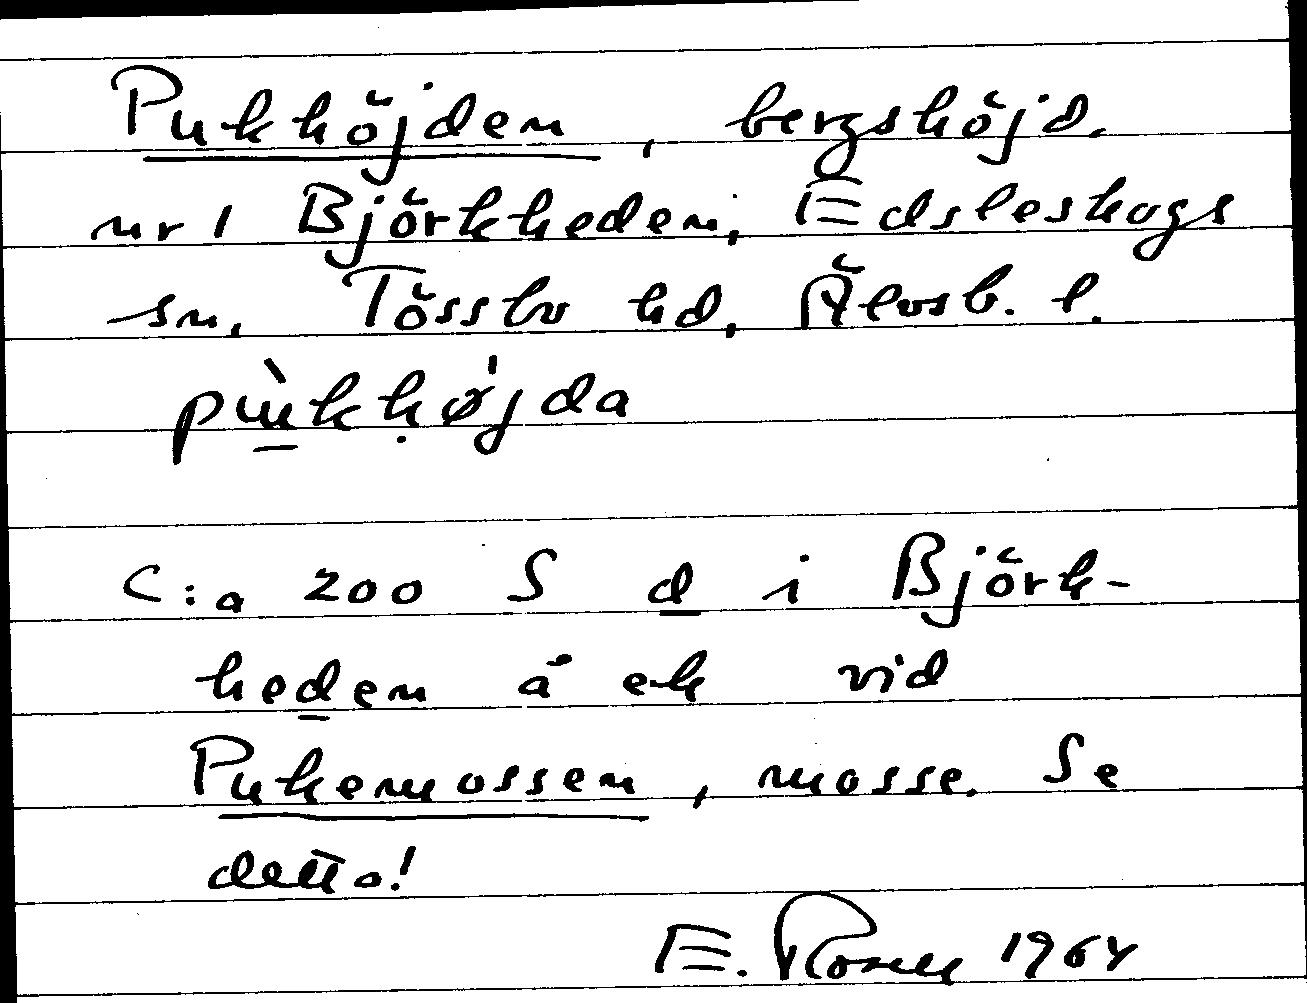 Pukhöjden, bergshöjd.
nr 1 Björkheden, Edsleskogs
sn, Tössbo hd, Älvsb. l.
pùkhøjda
C:a 200 S d i Björk-
heden å ek vid
Pukemossen, mosse. Se
detta!
E. Rosell 1964